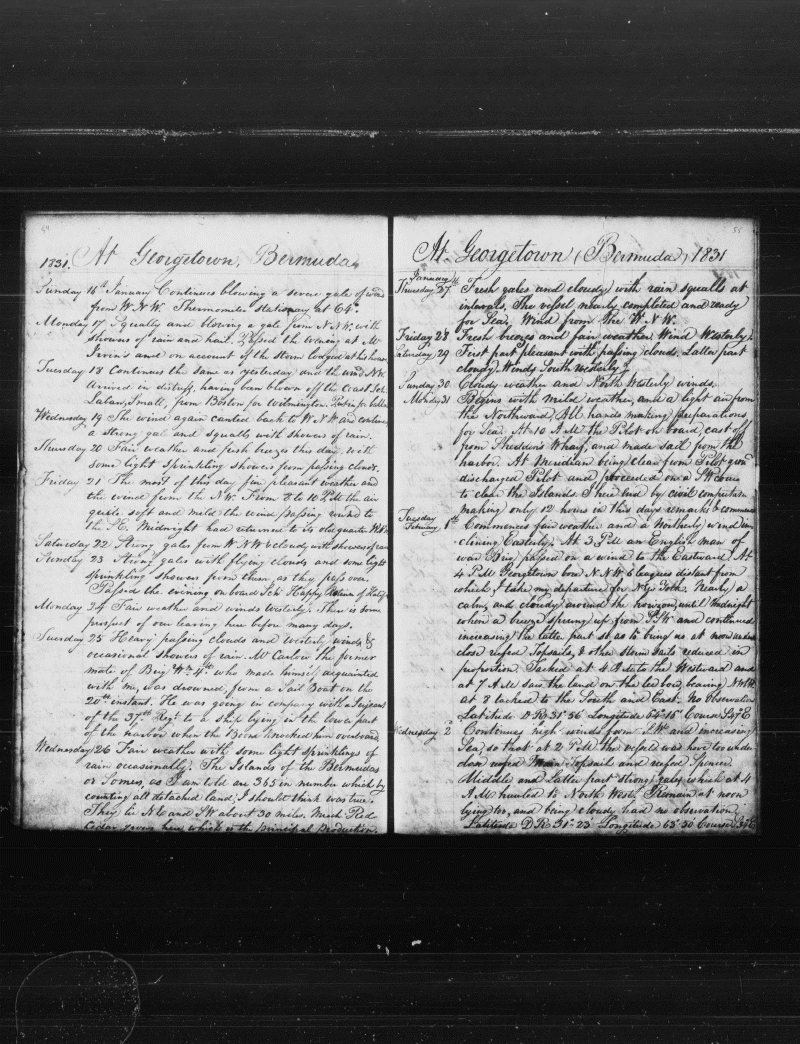 54
1831. At Georgetown, Bermuda,
Sunday 16th January Continues blowing a severe gale of wind
from W.N.W. Thermometer stationary at 64°.
Monday 17 Squally and blowing a gale from N.N.W. with
showers of rain and hail. Passed the evening at Mr
Irvins and on account of the storm lodged at his house
Tuesday 18 Continues the same as yesterday and the wind N.W.
Arrived in distress, having been blown off the Coast Sch.
Small, from Boston for Wilmington.
Wednesday 19 The wind again canted back to W N W and continues
a strong gale and squalls with showers of rain.
Thursday 20 Fair weather and fresh breezes this day with
some light sprinkling showers from passing clouds.
Friday 21 The most of this day fine pleasant weather and
the wind from the N.W. From 8 to 10 P.M. the air
quite soft and mild the wind passing round to
the S.E. Midnight had returned to its old quarter W.N.W.
Saturday 22 Strong gales from W N W & cloudy with showers of rain
Sunday 23 Strong gales with flying clouds and some light
sprinkling showers from them as they pass over.
Passed the evening on board Sch. Happy Return of
Monday 24 Fair weather and winds Westerly. There is some
prospect of our leaving here before many days.
Tuesday 25 Heavy passing clouds and Westerly winds, &
occasional showers of rain. Mr Carlow the former
mate of Brig Wm 4th who made himself acquainted
with me, was drowned from a Sail Boat on the
20th instant. He was going in company with a Serjeant
of the 37th Regt. to a ship lying in the lower part
of the harbor when the Boom knocked him overboard
Wednesday 26 Fair weather with some light sprinklings of
rain occasionally. The Islands of the Bermudas
or Somers, as I am told are 365 in number which by
counting all detached land, I should think was true.
They lie N.E and S.W about 30 miles. Much Red
Cedar grows here which is the principal production.
55
At Georgetown (Bermuda) 1831
January
Thursday 27th Fresh gales and cloudy with rain squalls at
intervals. The vessel nearly completed and ready
for Sea. Wind from the W.N.W.
Friday 28 Fresh breezes and fair weather. Wind Westerly.
Saturday 29 First part pleasant with passing clouds, Latter part
cloudy. Winds South Westerly
Sunday 30 Cloudy weather and North Westerly winds.
Monday 31 Begins with mild weather, and a light air from
the Northward, All hands making preparations
for Sea. At 10 A.M. the Pilot on board, cast off
from Shedden's Wharf, and made sail from the
harbor. At Meridian being clear from Pilot ground
discharged Pilot and proceeded on a S.W. course
to clear the Islands. Here end by civil computation
making only 12 hours in this days remarks & commences
Tuesday
February 1st Commences fair weather and a Northerly wind in-
clining Easterly. At 3 P.M. an English man of
war Brig passed on a wind to the Eastward. At
4 P.M. Georgetown bore N.N.W. 6 leagues distant from
which I take my departure for New York. Nearly a
calm, and cloudy around the horizon, until Midnight
when a breeze sprung up from S.S.W and continued
increasing the latter part so as to bring us at noon under
close reefed Topsails, & other storm sails reduced in
proportion. Tacked at 4 A.M. to the Westward and
at 7 A.M saw the land on the lee bow, bearing N.W.
at 8 tacked to the South and East. No observation
Latitude D.R. 31°56 Longitude 64°15 Course S47E
Wednesday 2d Continues high winds from S.W. and increasing
Sea, so that at 2 P.M. the vessel was hove too under
close reefed Main Topsail and reefed Spencer.
Middle and Latter part strong gales which at 4
A.M hauled to North West. Remain at noon
lying too, and being cloudy had no observation
Latitude D.R. 31°23 Longitude 63°50